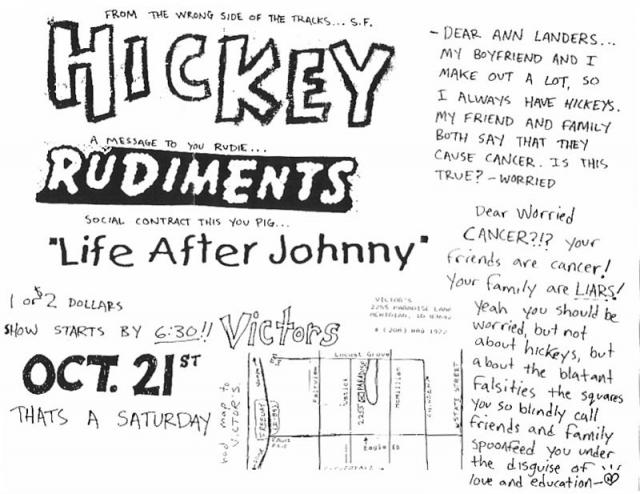 FROM THE WRONG SIDE OF THE TRACKS... S.F.
HICKEY
A MESSAGE TO YOU RUDIE...
RUDIMENTS
SOCIAL CONTRACT THIS YOU PIG...
"Life After Johnny"
1 or $2 DOLLARS
SHOW STARTS BY 6:30!!
OCT. 21ST
THATS A SATURDAY
- DEAR ANN LANDERS...
MY BOYFRIEND AND I
MAKE OUT A LOT, SO
I ALWAYS HAVE HICKEYS.
MY FRIEND AND FAMILY
BOTH SAY THAT THEY
CAUSE CANCER. IS THIS
TRUE? - WORRIED
Dear Worried
CANCER?!? your
friends are cancer!
Your family are LIARS!
Yeah you should be
worried, but not
about hickeys, but
about the blatant
falsities the squares
you so blindly call
friends and family
spoonfeed you under
the disguise of
love and education-
Victors
VICTOR'S
2255 PARADISE LANE
MERIDIAN, ID
rad map to
VICTOR'S
Locust Grove
STATE STREET
Eagle Rd